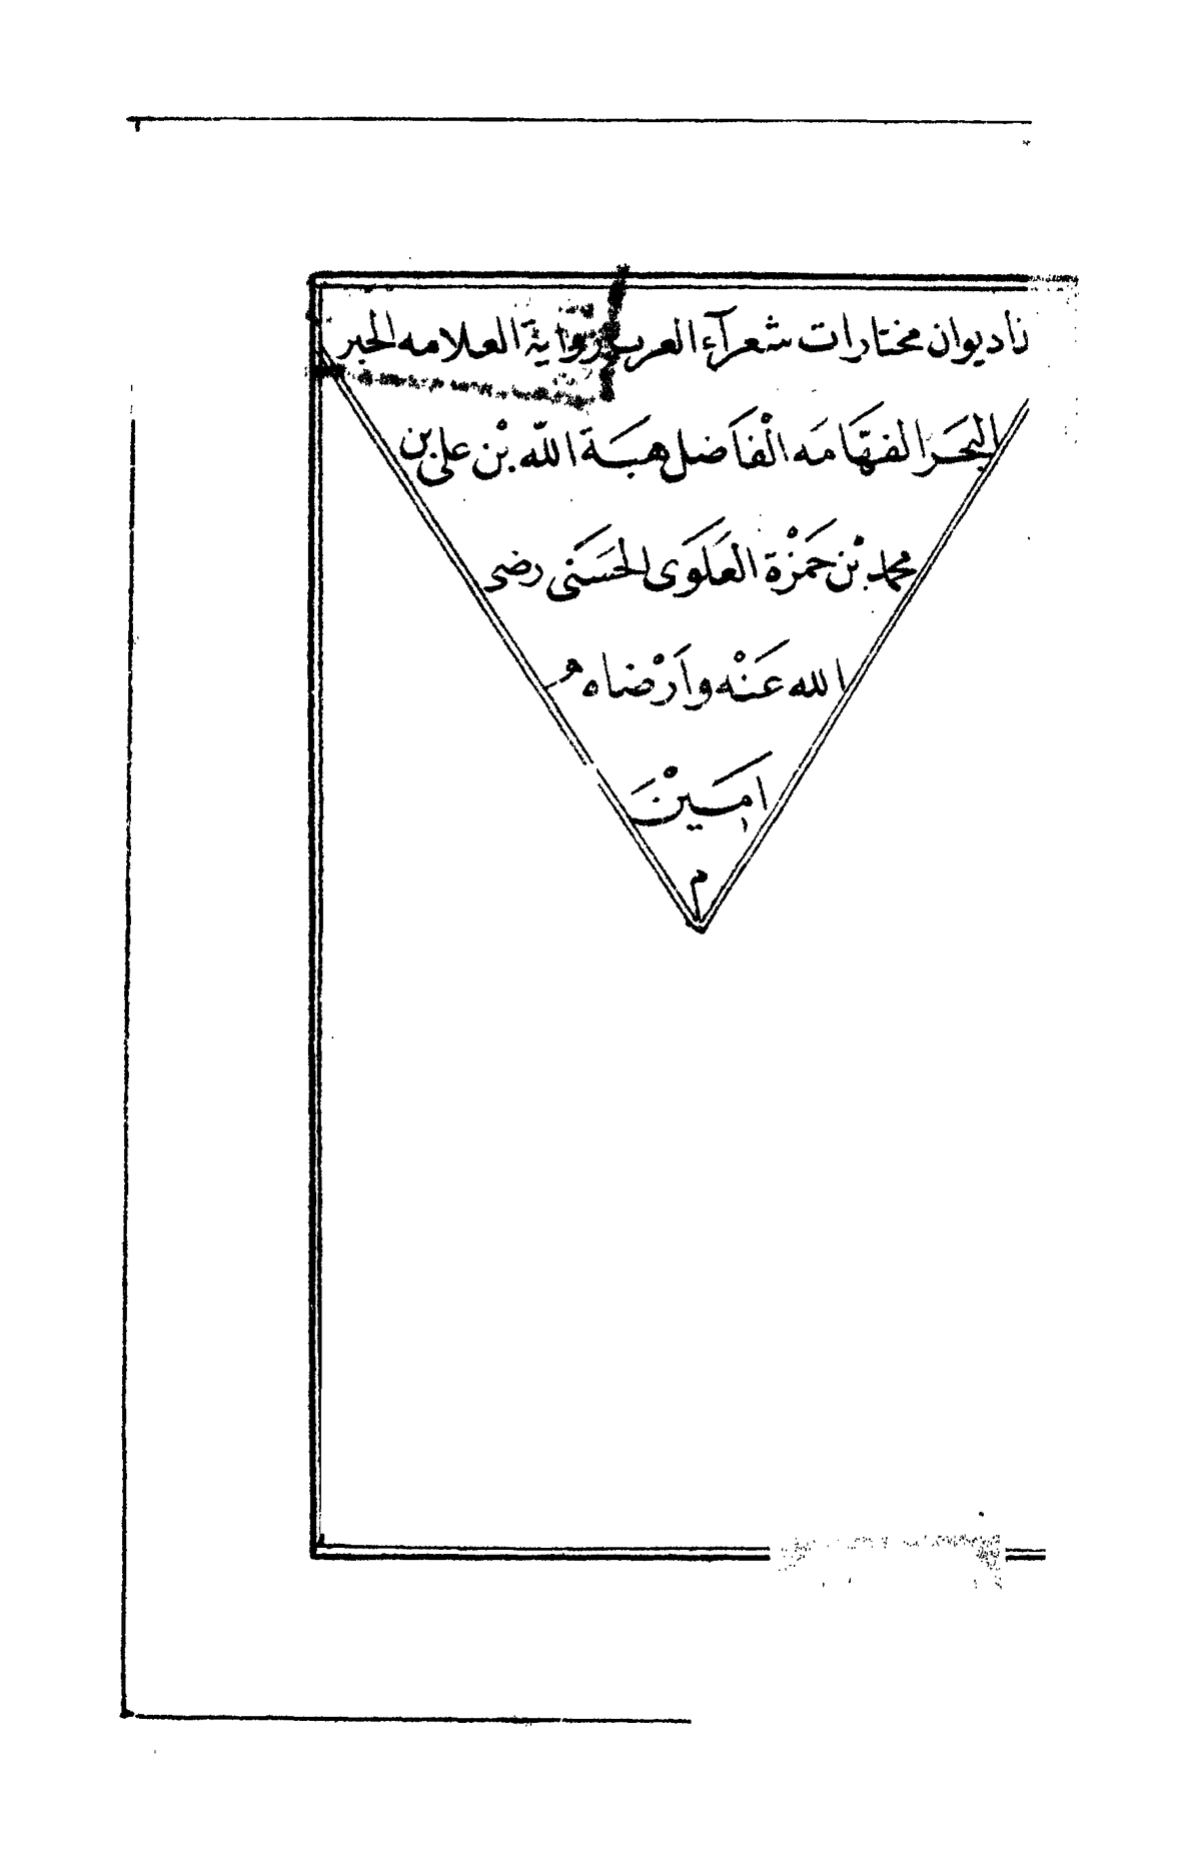 ذا ديوان مختارات شعرآء العرب رواية العلامه الحبر
البحَر الفهّامَه الْفاَضل هبَة اللّه بْن على بن
محمد بْن حَمْزة العَلَوَى الحَسَنى رضى
الله عَنْه وَاَرْضاه
اٰمِيَنْ
م